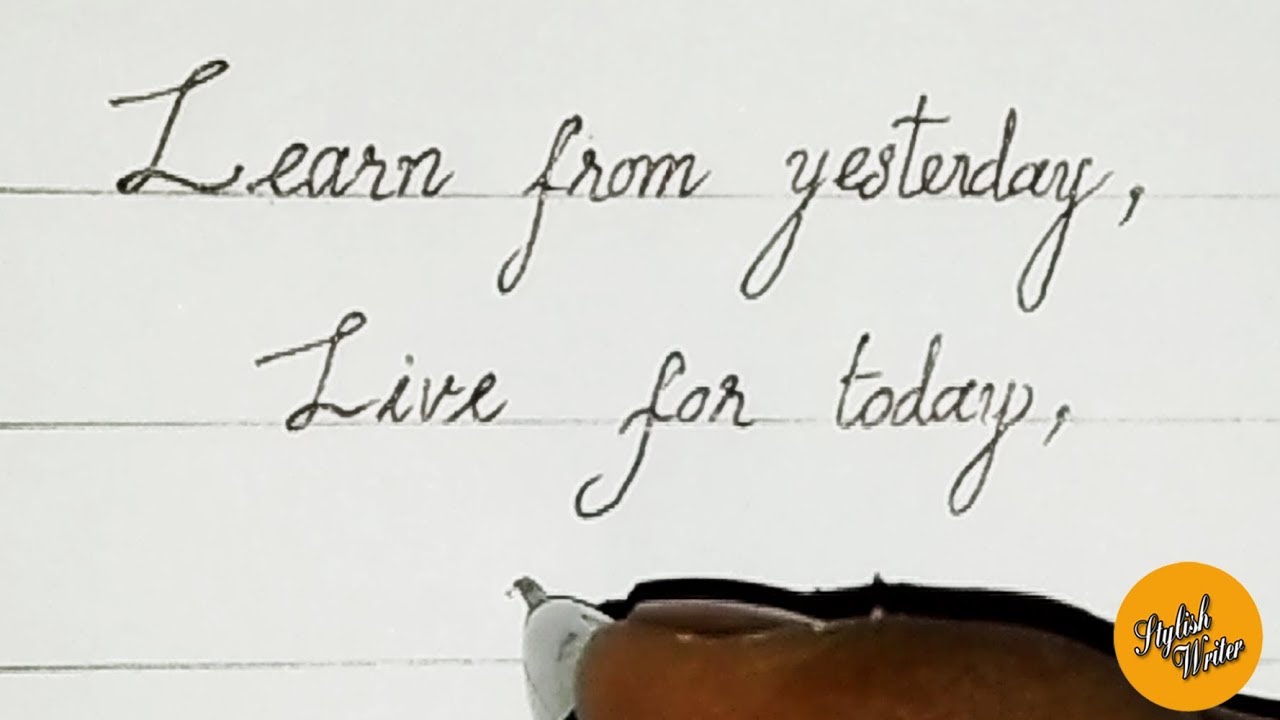 Learn from yesterday,
Live for today,
Stylish
Writer